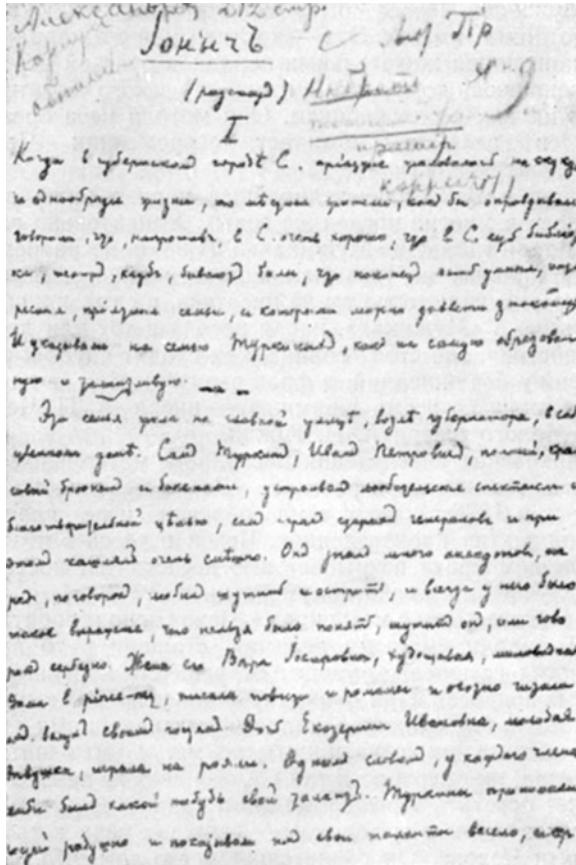 Александров 212 стр.
Іонычъ
(разсказ)
I
Когда в губернском городѣ С. приѣзжіе жаловались на скуку
и однообразіе жизни, то мѣстные жители, как бы оправдываясь,
говорили, что, напротив, в С. очень хорошо, что в С. есть библіоте-
ка, театр, клуб, бывают балы, что наконец есть умныя, инте-
ресныя, пріятныя семьи, с которыми можно завести знакомства.
И указывали на семью Туркиных, как на самую образован-
ную и талантливую.
Эта семья жила на главной улицѣ, возлѣ губернатора, в соб-
ственном домѣ. Сам Туркин, Иван Петрович, полный, кра-
сивый брюнет с бакенами, устраивал любительскіе спектакли с
благотворительной цѣлью, сам играл старых генералов и при
этом кашлял очень смѣшно. Он знал много анекдотов, ша-
рад, поговорок, любил шутить и острить, и всегда у него было
такое выраженіе, что нельзя было понять, шутит он, или гово-
рит серьезно. Жена его Вѣра Іосифовна, худощавая, миловидная
дама в pince-nez, писала повѣсти и романы и охотно читала
их вслух своим гостям. Дочь, Екатерина Ивановна, молодая
дѣвушка, играла на рояли. Одним словом, у каждого члена
семьи был какой нибудь свой талант. Туркины принимали
гостей радушно и показывали им свои таланты весело, с сер-